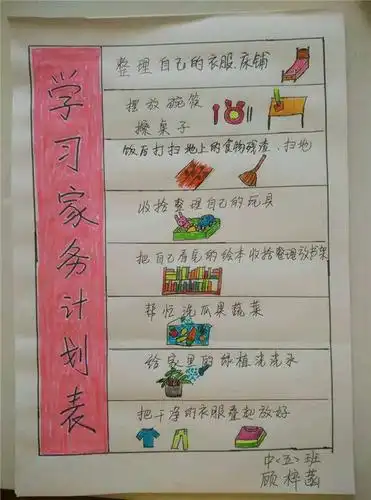 学习家务计划表
整理自己的衣服.床铺
摆放碗筷
擦桌子
饭后打扫地上的食物残渣、扫地
收拾整理自己的玩具
把自己看完的绘本收拾整理放书架
帮忙洗瓜果蔬菜
给家里的绿植浇浇水
把干净的衣服叠起放好
中〈五〉班
顾梓菡